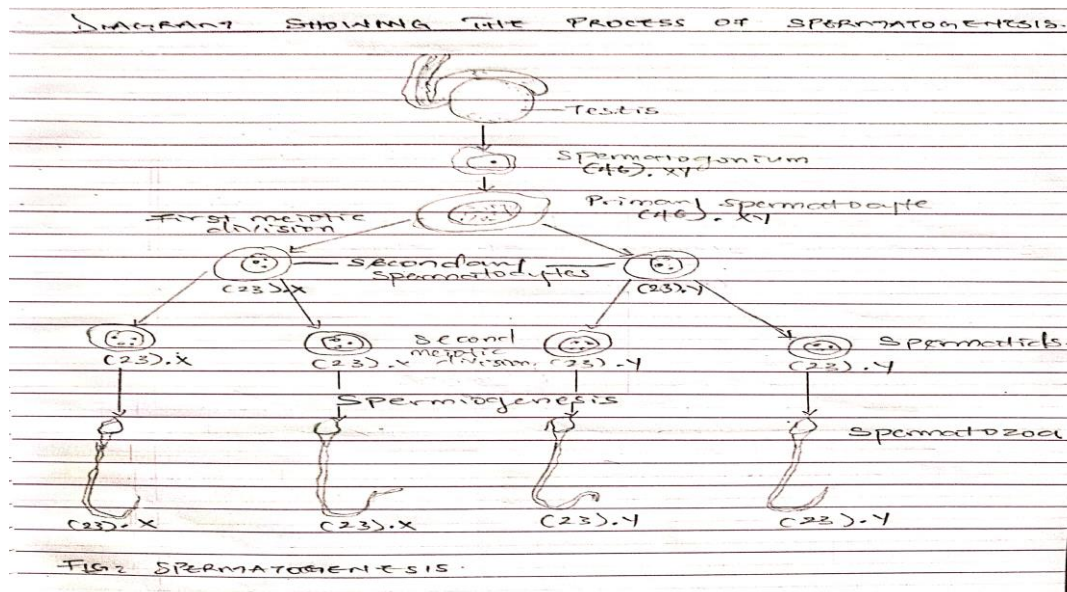 DIAGRAM SHOWING THE PROCESS OF SPERMATOGENESIS.
Testis
Spermatogonium
(46).XY
Primary spermatocyte
(46).XY
First meiotic
division
Secondary
spermatocytes
(23).X
(23).Y
(23).X
(23).X
Second
meiotic
division.
(23).Y
(23).Y
Spermatids.
Spermiogenesis
Spermatozoa
(23).X
(23).X
(23).Y
(23).Y
FIG: SPERMATOGENESIS.